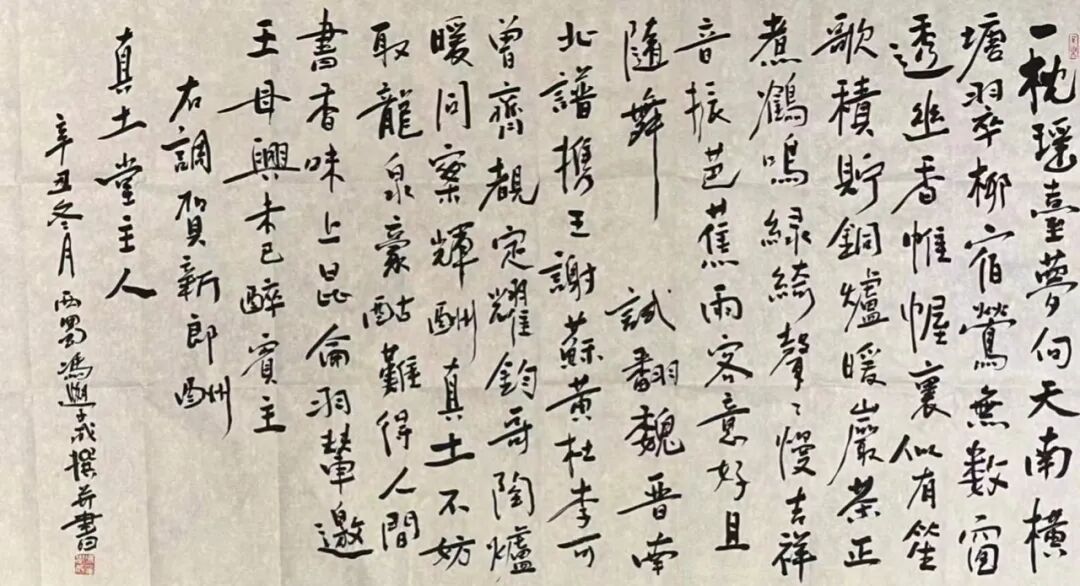 一枕瑶臺夢向天南橫
塘翠柳宿鶯無數窗
透幽香帷幄裏似有笙
歌積貯銅爐暖巖茶正
煮鶴鳴綠綺聲〻慢吉祥
音振芭蕉雨客意好且
隨舞　試翻魏晋南
北譜携王謝蘇黃杜李可
曾齊觀定耀鈞哥陶爐
暖同案輝酬真土不妨
取龍泉豪酤難得人間
書香味上昆侖羽輦邀
王母興未已醉賓主
右調賀新郎酬
真土堂主人
辛丑冬月西蜀馮 撰并書